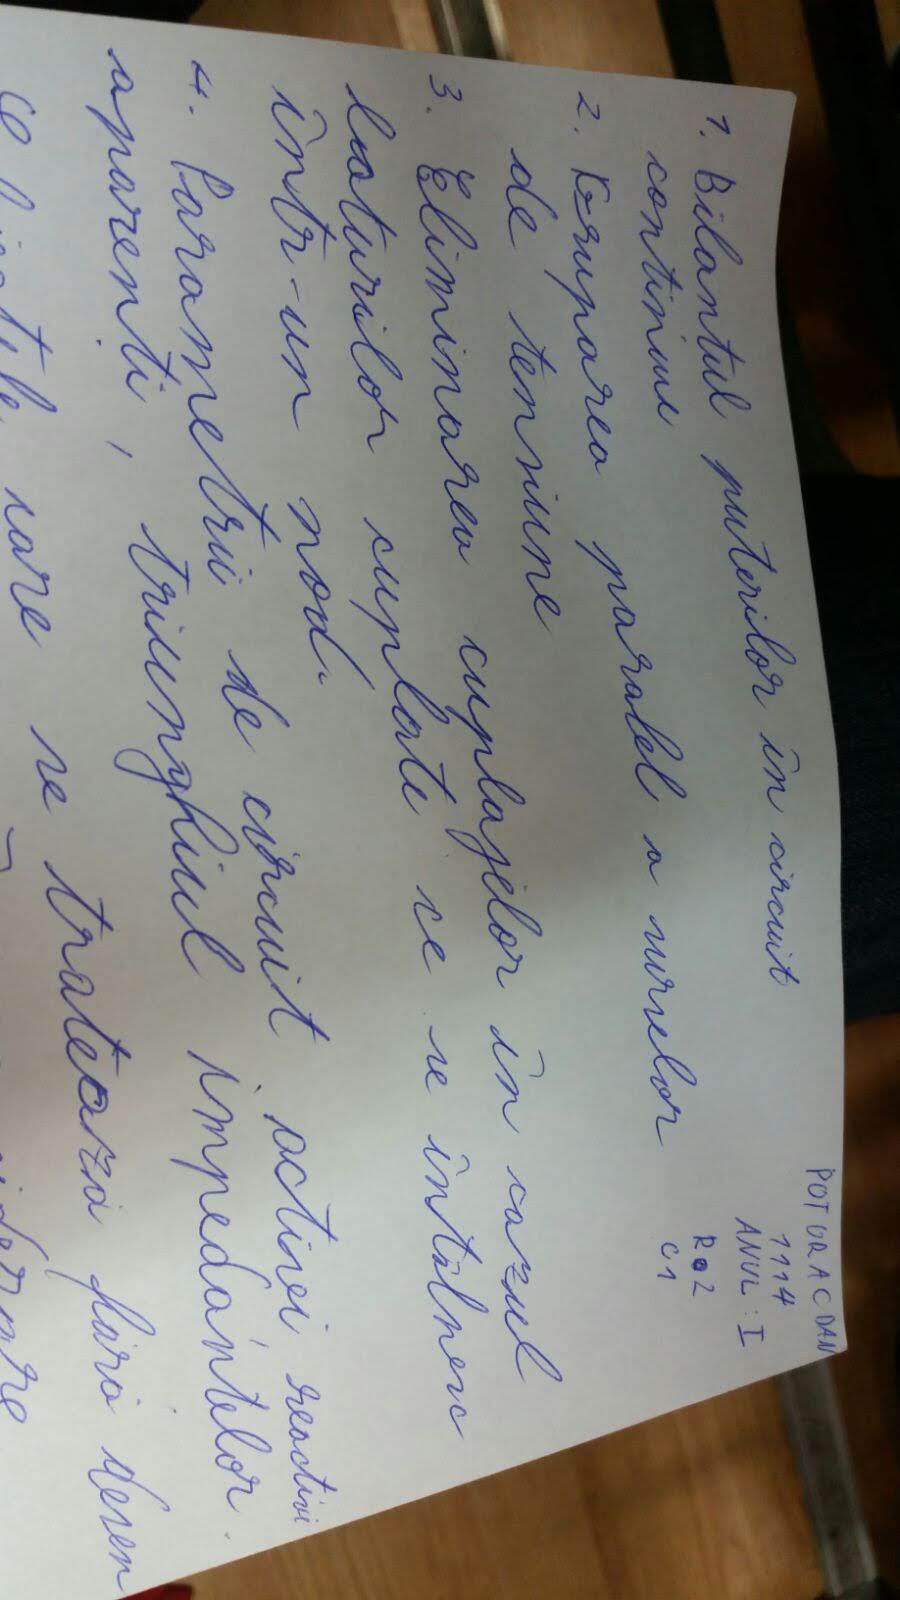 POTORAC DAN
1114
ANUL : I
R 2
C1
1. Bilantul puterilor în circuit
continuu
2. Gruparea paralel a surselor
de tensiune
3. Eliminarea cuplajelor în cazul
laturilor cuplate ce se întâlnesc
într-un nod.
4. Parametrii de circuit activi, reactivi
aparenţi, triunghiul impedanţelor.
Subiectele care se tratează fără desen